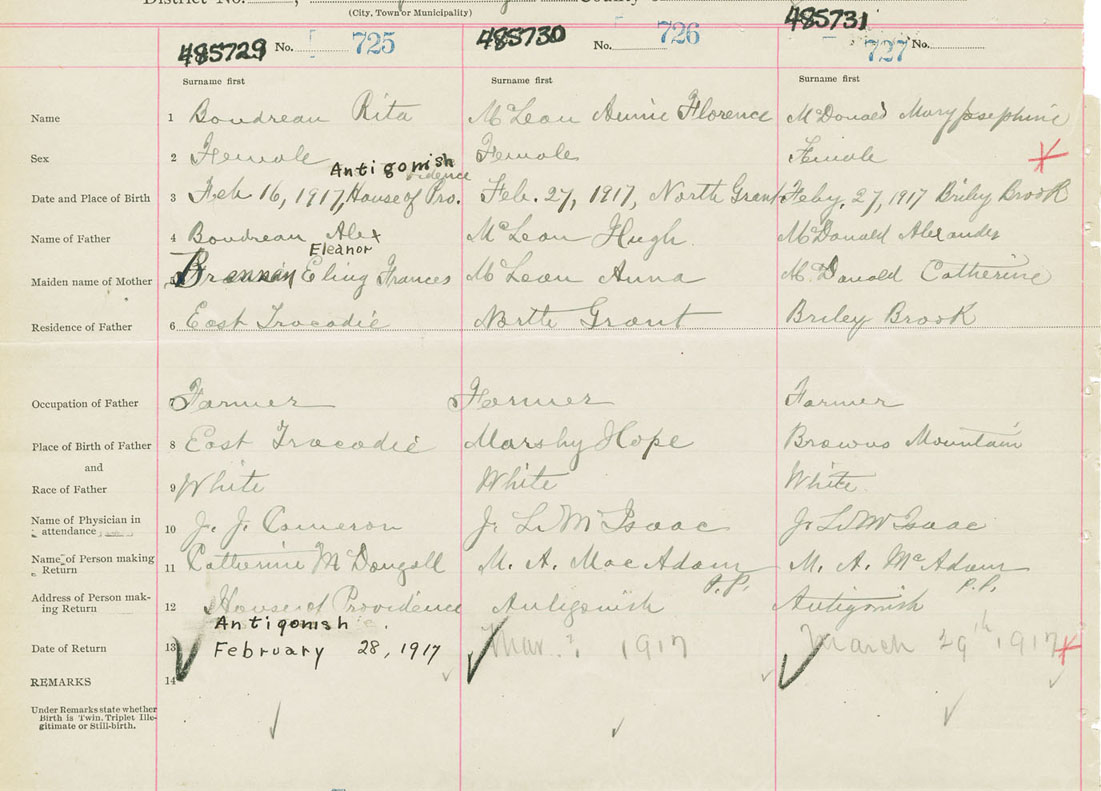 District No.
(City, Town or Municipality)
485729 No. 725
485730 No. 726
485731 No. 727
Surname first
Surname first
Surname first
Name 1 Boudreau Rita
McLean Annie Florence
McDonald Mary Josephine
Sex 2 Female
Female
Female
Antigonish
Date and Place of Birth 3 Feb 16, 1917, House of Pro.vidence
Feb. 27, 1917, North Grant
Feby. 27, 1917 Briley Brook
Name of Father 4 Boudreau Alex
McLean Hugh
McDonald Alexander
Eleanor
Maiden name of Mother 5 Brennan Frances
McLean Anna
McDonald Catherine
Residence of Father 6 East Tracadie
North Grant
Briley Brook
Occupation of Father 7 Farmer
Farmer
Farmer
Place of Birth of Father 8 East Tracadie
Marshy Hope
Browns Mountain
and
Race of Father 9 White
White
White
Name of Physician in
attendance 10 J. J. Cameron
J. L. McIsaac
J. L. McIsaac
Name of Person making
Return 11 Catherine McDougall
M. A. MacAdam
P.P.
M. A. McAdam
P.P.
Address of Person mak-
ing Return 12 House of Providence
Antigonish
Antigonish
Antigonish
Date of Return 13 February 28, 1917
Mar. 1917
March 29th 1917
REMARKS 14
Under Remarks state whether
Birth is Twin, Triplet Ille-
gitimate or Still-birth.